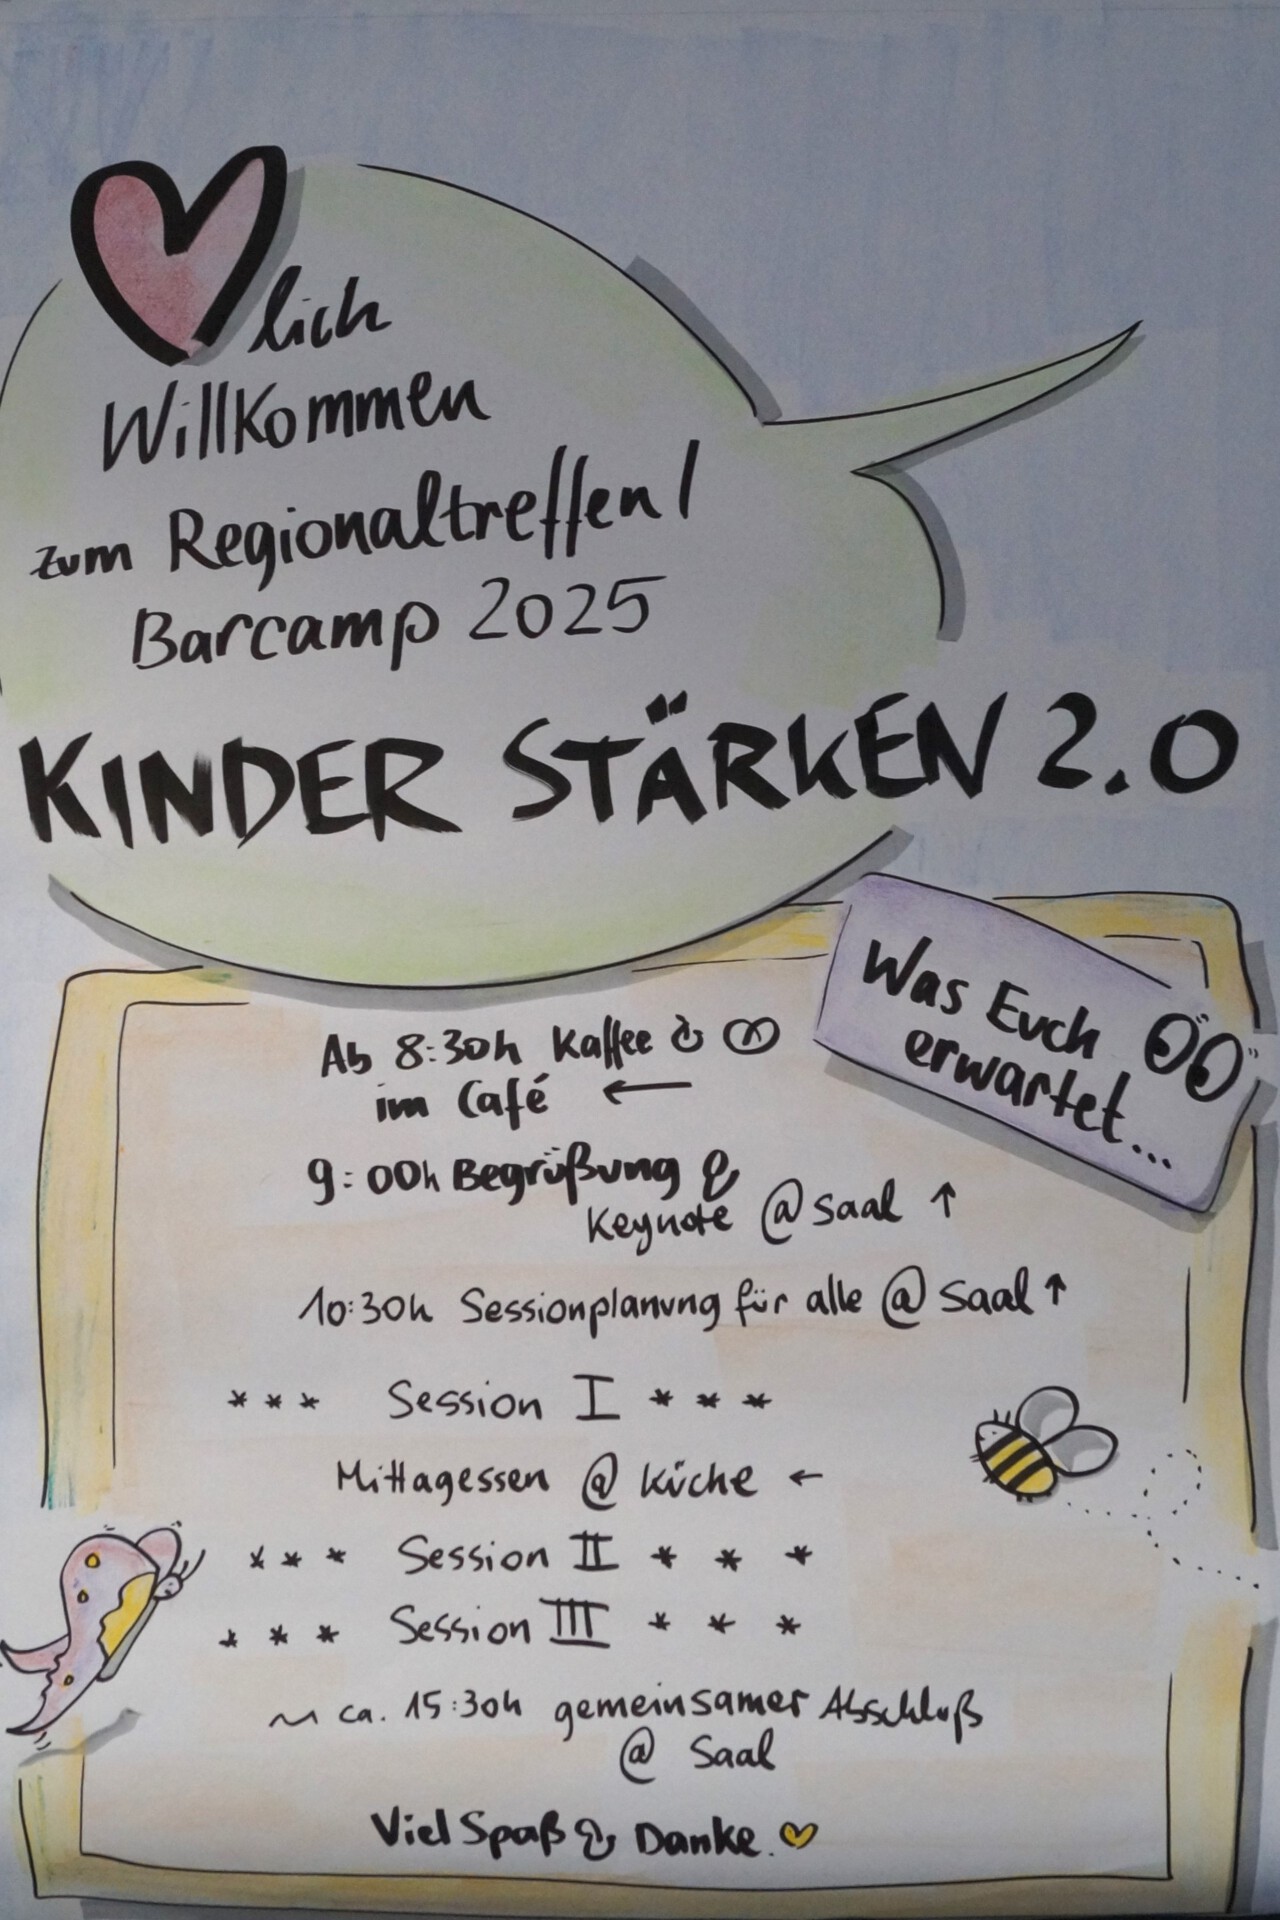 lich
Willkommen
zum Regionaltreffen/
Barcamp 2025
KINDER STÄRKEN 2.0
Was Euch
erwartet...
Ab 8:30h Kaffee &
im Café ←
9:00h Begrüßung &
Keynote @ Saal ↑
10:30h Sessionplanung für alle @ Saal ↑
*** Session I ***
Mittagessen @ Küche ←
*** Session II ***
*** Session III ***
~ ca. 15:30h gemeinsamer Abschluß
@ Saal
Viel Spaß & Danke.